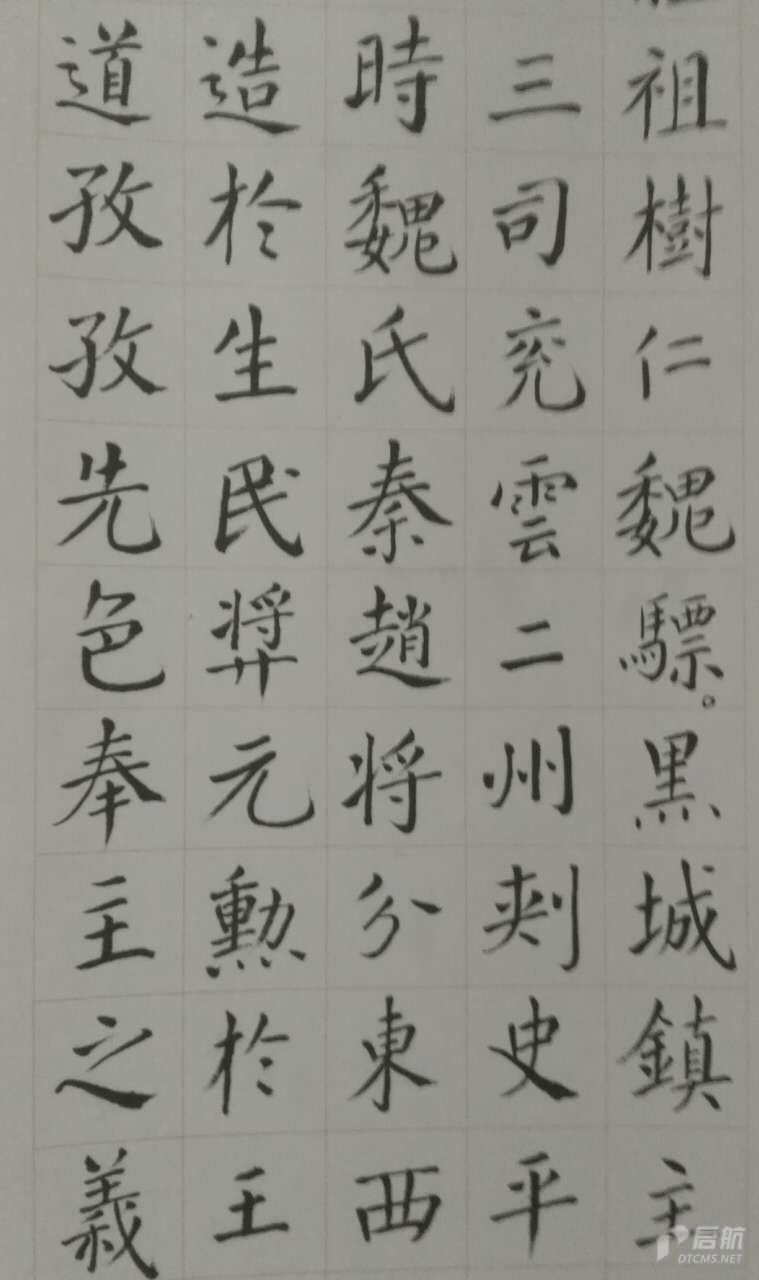 祖樹仁魏驃。黑城鎮主
三司兖雲二州刺史平
時魏氏秦趙将分東西
造於生民弉元勳於王
道孜孜先色奉主之義
启航
DTCMS.NET